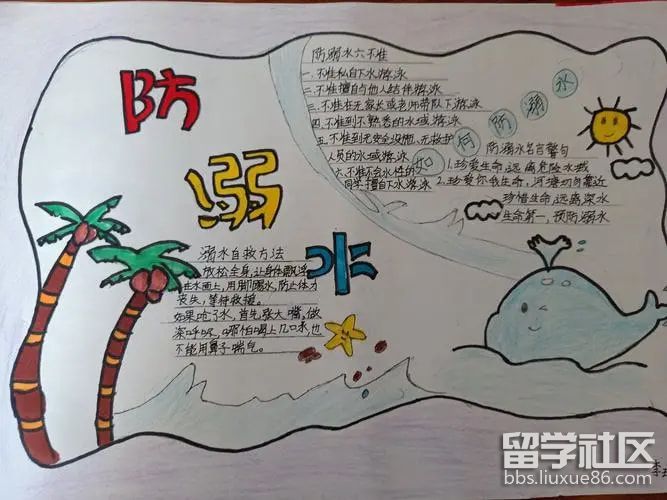 防
溺
水
防溺水六不准
一.不准私自下水游泳
二.不准擅自与他人结伴游泳
三.不准在无家长或老师带队下游泳
四.不准到不熟悉的水域游泳
五.不准到无安全设施、无救护
人员的水域游泳
六.不准不会水性的
同学擅自下水游泳
如何防溺水
防溺水名言警句
1.珍爱生命,远离危险水域
2.珍爱你我生命,河塘切勿靠近
珍惜生命,远离深水
生命第一,预防溺水
溺水自救方法
放松全身,让身体飘浮
在水面上,用脚踢水,防止体力
丧失,等待救援。
如果呛了水,首先张大嘴,做
深呼吸,哪怕喝上几口水,也
不能用鼻子喘气。
留学社区
bbs.liuxue86.com
李